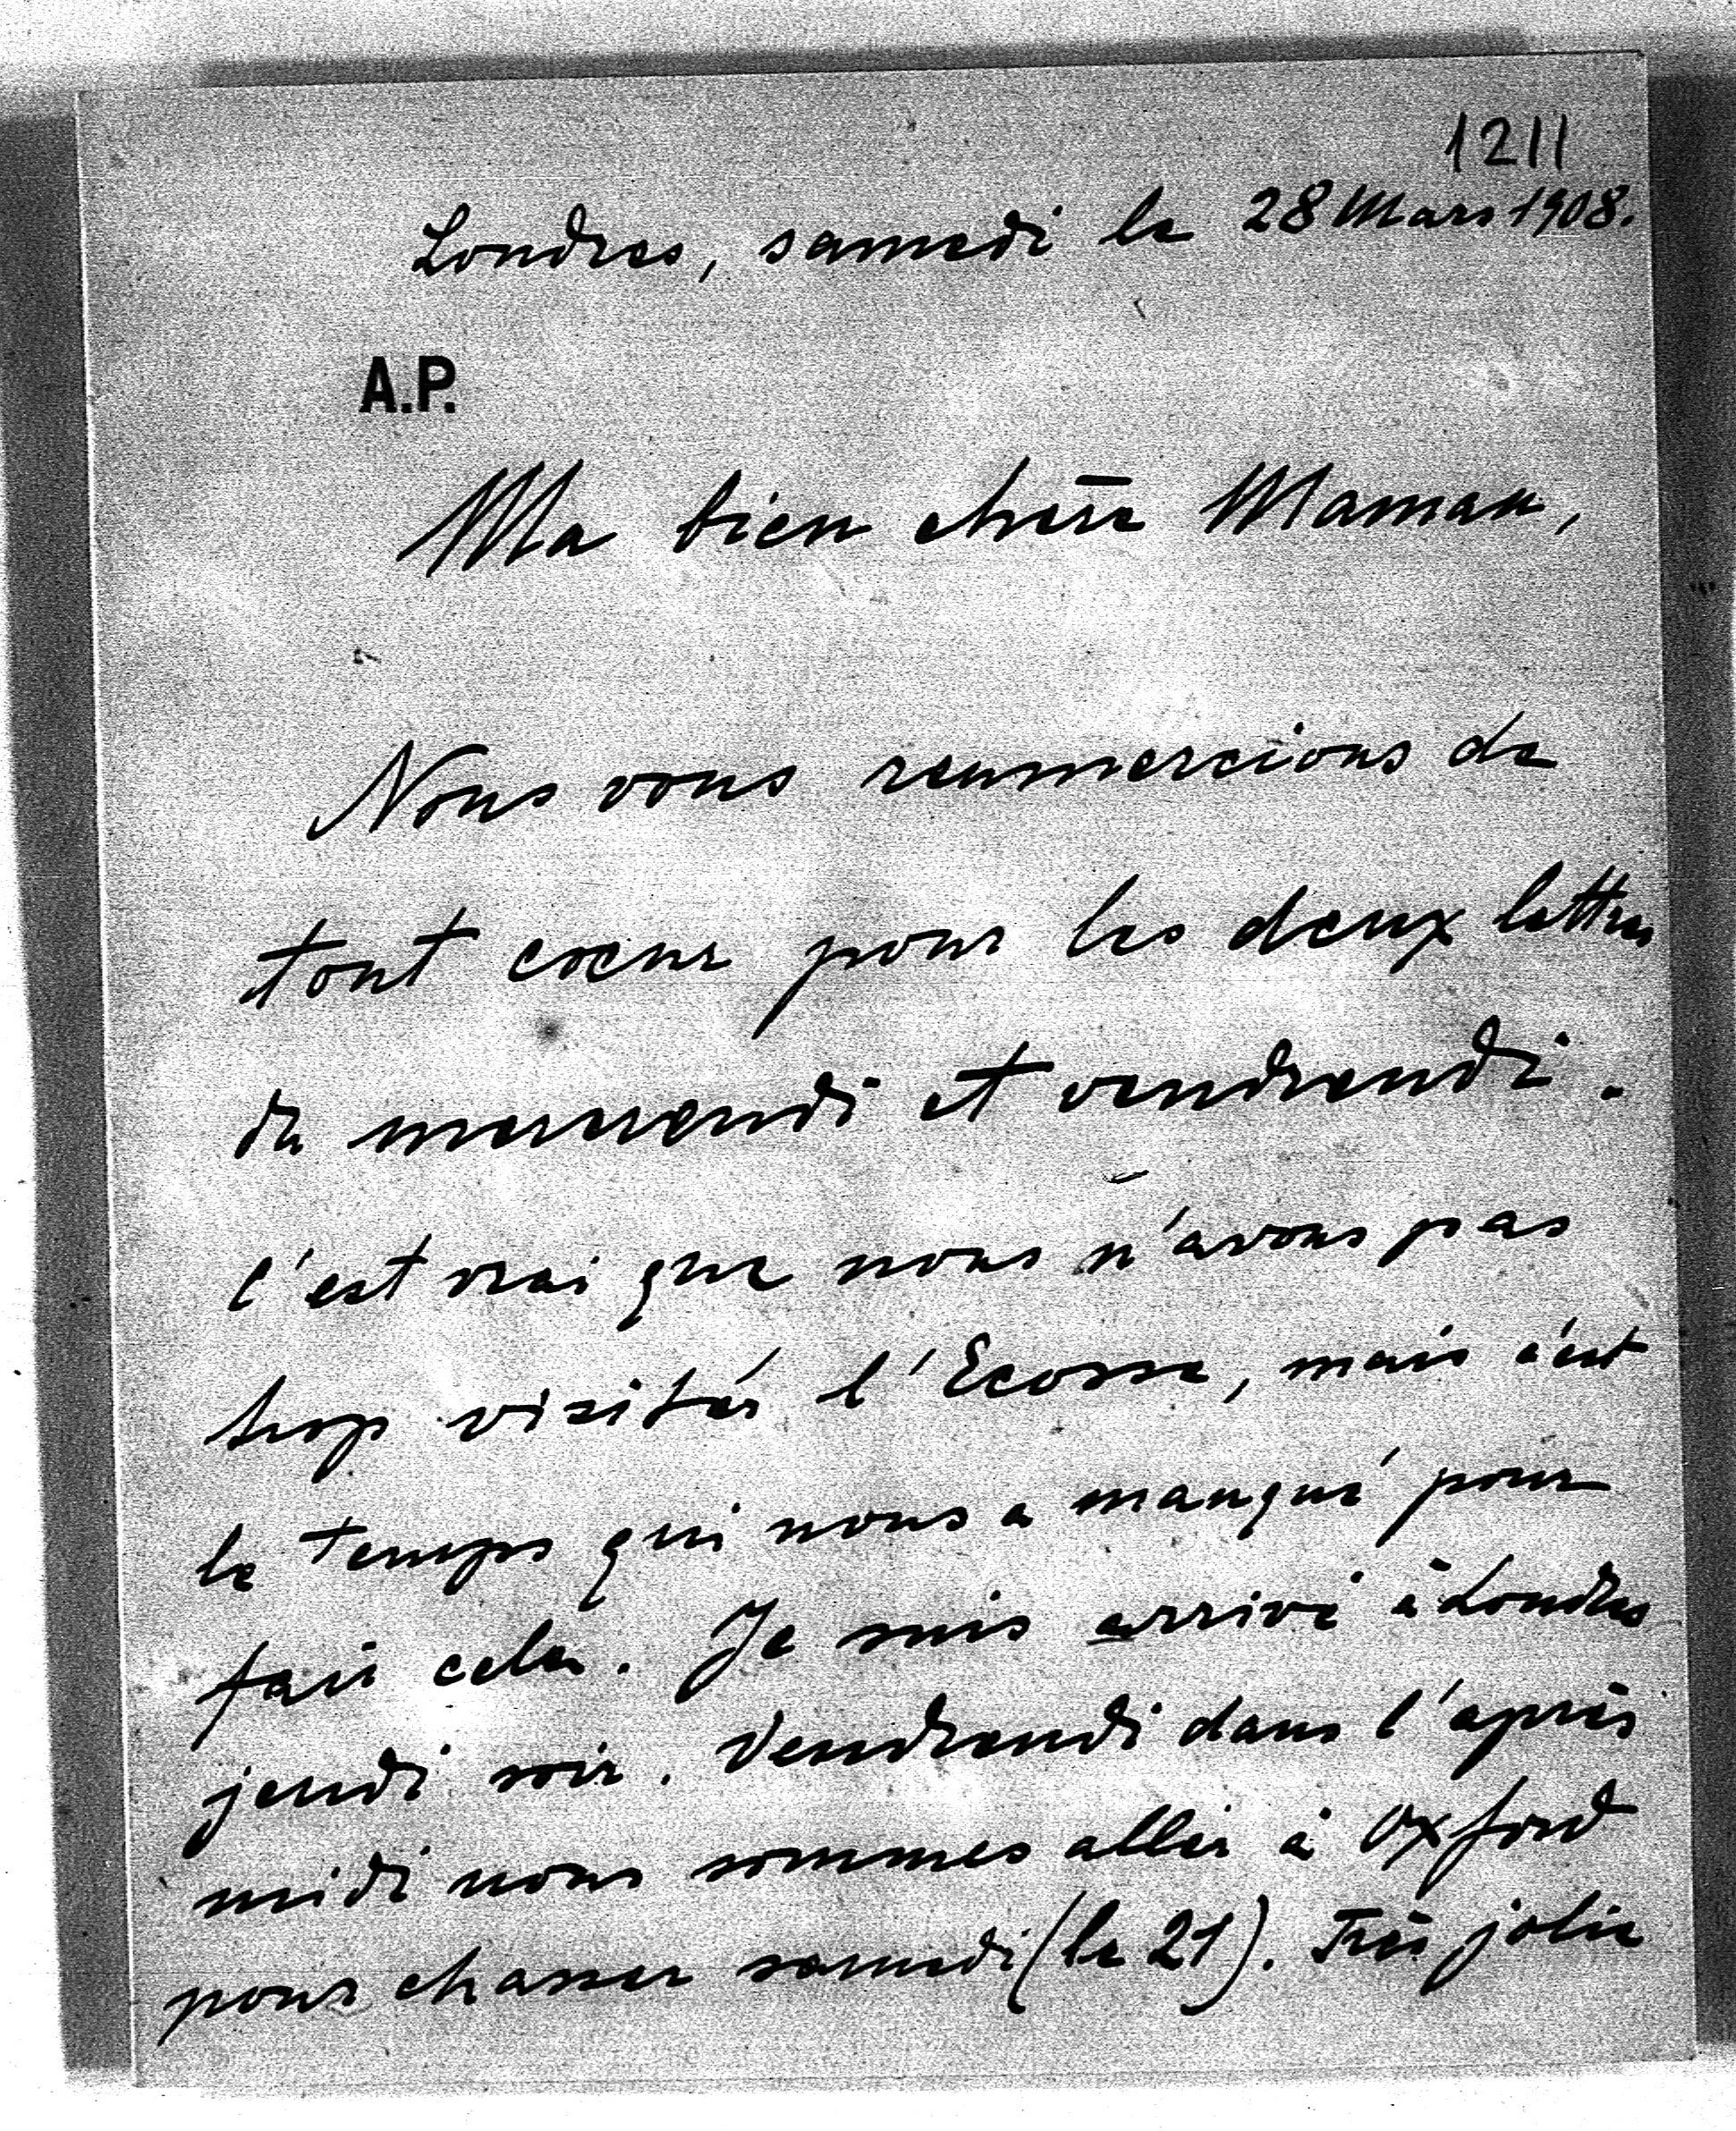 1211
Londres, samedi le 28 Mars 1908.
A.P.
Ma bien chère Maman,
Nous vous remmercions de
tout coeur pour les deux lettres
de merrendi et vendrendi.
C'est vrai que nous n'avons pas
trop visités l'Ecosse, mais c'est
le temps qui nous a manqué pour
fair cela. Je suis arrivé à Londres
jendi soir. Vendrendi dans l'après
midi nous sommes allés à Oxford
pour chasser samedi (le 21). Très jolie